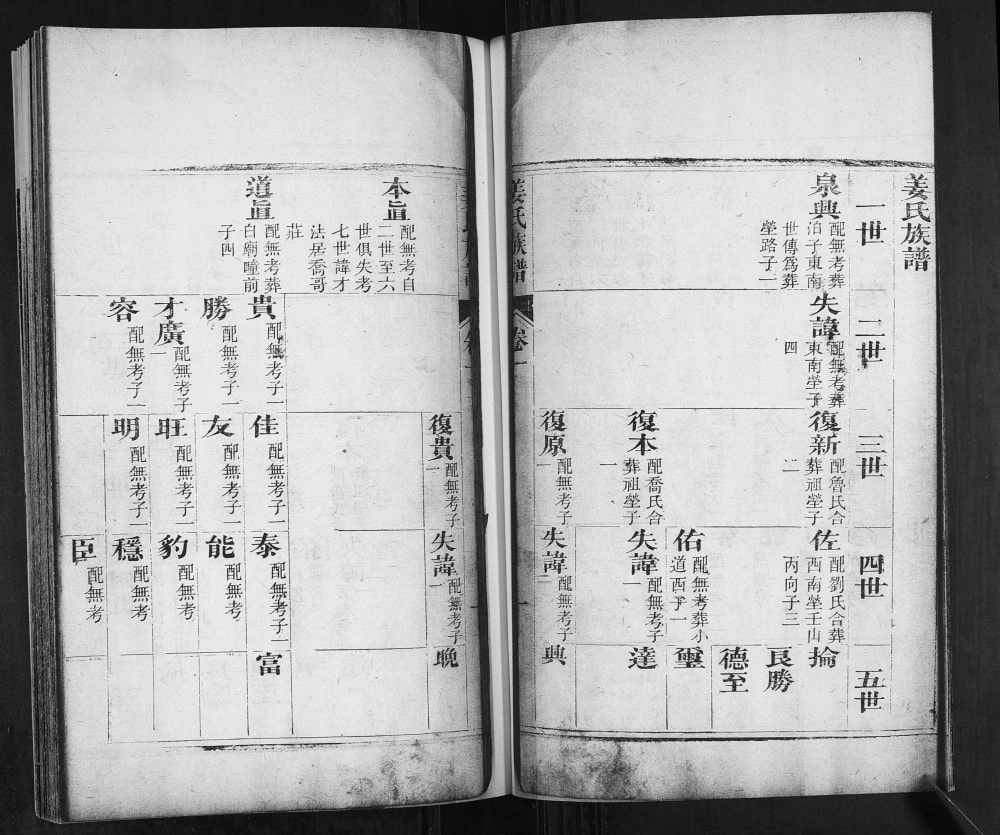 姜氏族譜
一世
二世
三世
四世
五世
泉興
配無考葬
泊子東南
世傳爲葬
塋路子一
失諱
配無考葬
東南塋子
四
復新
配魯氏合
葬祖塋子
二
佐
配劉氏合葬
西南塋壬山
丙向子三
掄
良勝
德至
佑
配無考葬小
道西子一
璽
復本
配喬氏合
葬祖塋子
一
失諱
配無考子
一
達
復原
配無考子
一
失諱
配無考子
二
興
姜氏族譜
卷一
一
復貴
配無考子
一
失諱
配無考子
一
晚
本眞
配無考自
二世至六
世俱失考
七世諱才
法居喬哥
莊
道眞
配無考葬
白廟疃前
子四
貴
配無考子一
佳
配無考子一
泰
配無考子一
富
勝
配無考子一
友
配無考子一
能
配無考
才廣
配無考子
一
旺
配無考子一
豹
配無考
容
配無考子一
明
配無考子二
穩
配無考
臣
配無考